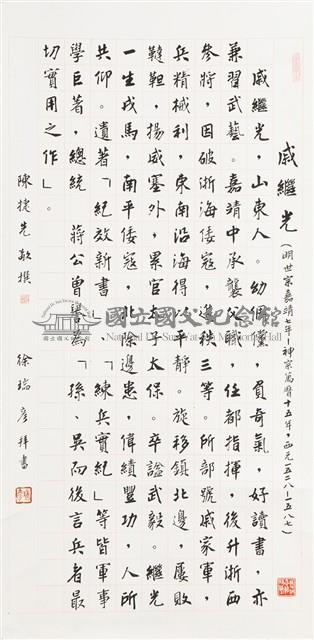 戚繼光（明世宗嘉靖七年—神宗萬曆十五年，西元一五二八—一五八七）
戚繼光，山東人。幼倜儻，負奇氣，好讀書，亦
兼習武藝。嘉靖中承襲父職，任都指揮，後升浙西
參將，因破浙海倭寇，進秩三等。所部號戚家軍，
兵精械利，東南沿海得以平靜。旋移鎮北邊，屢敗
韃靼，揚威塞外，累官太子太保。卒諡武毅。繼光
一生戎馬，南平倭寇，北除邊患，偉績豐功，人所
共仰。遺著「紀效新書」、「練兵實紀」等皆軍事
學巨著，總統　蔣公曾譽為「孫、吳而後言兵者最
切實用之作」。
陳捷先敬撰
徐瑞彥拜書
國立國父紀念館
National Dr. Sun Yat-sen Memorial Hall